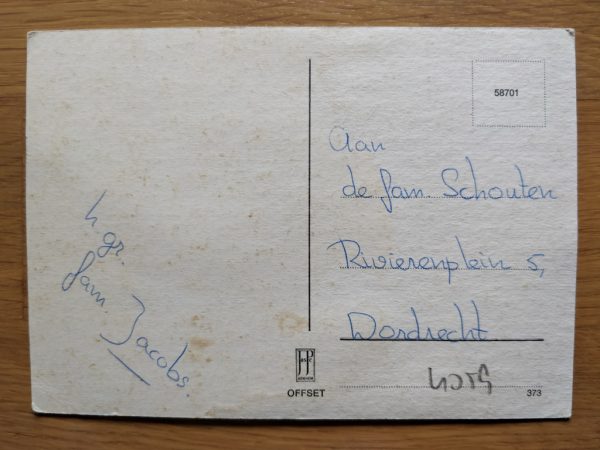 h gr.
fam. Jacobs.
58701
Aan
de fam. Schouten
Rivierenplein 5,
Dordrecht
OFFSET
373